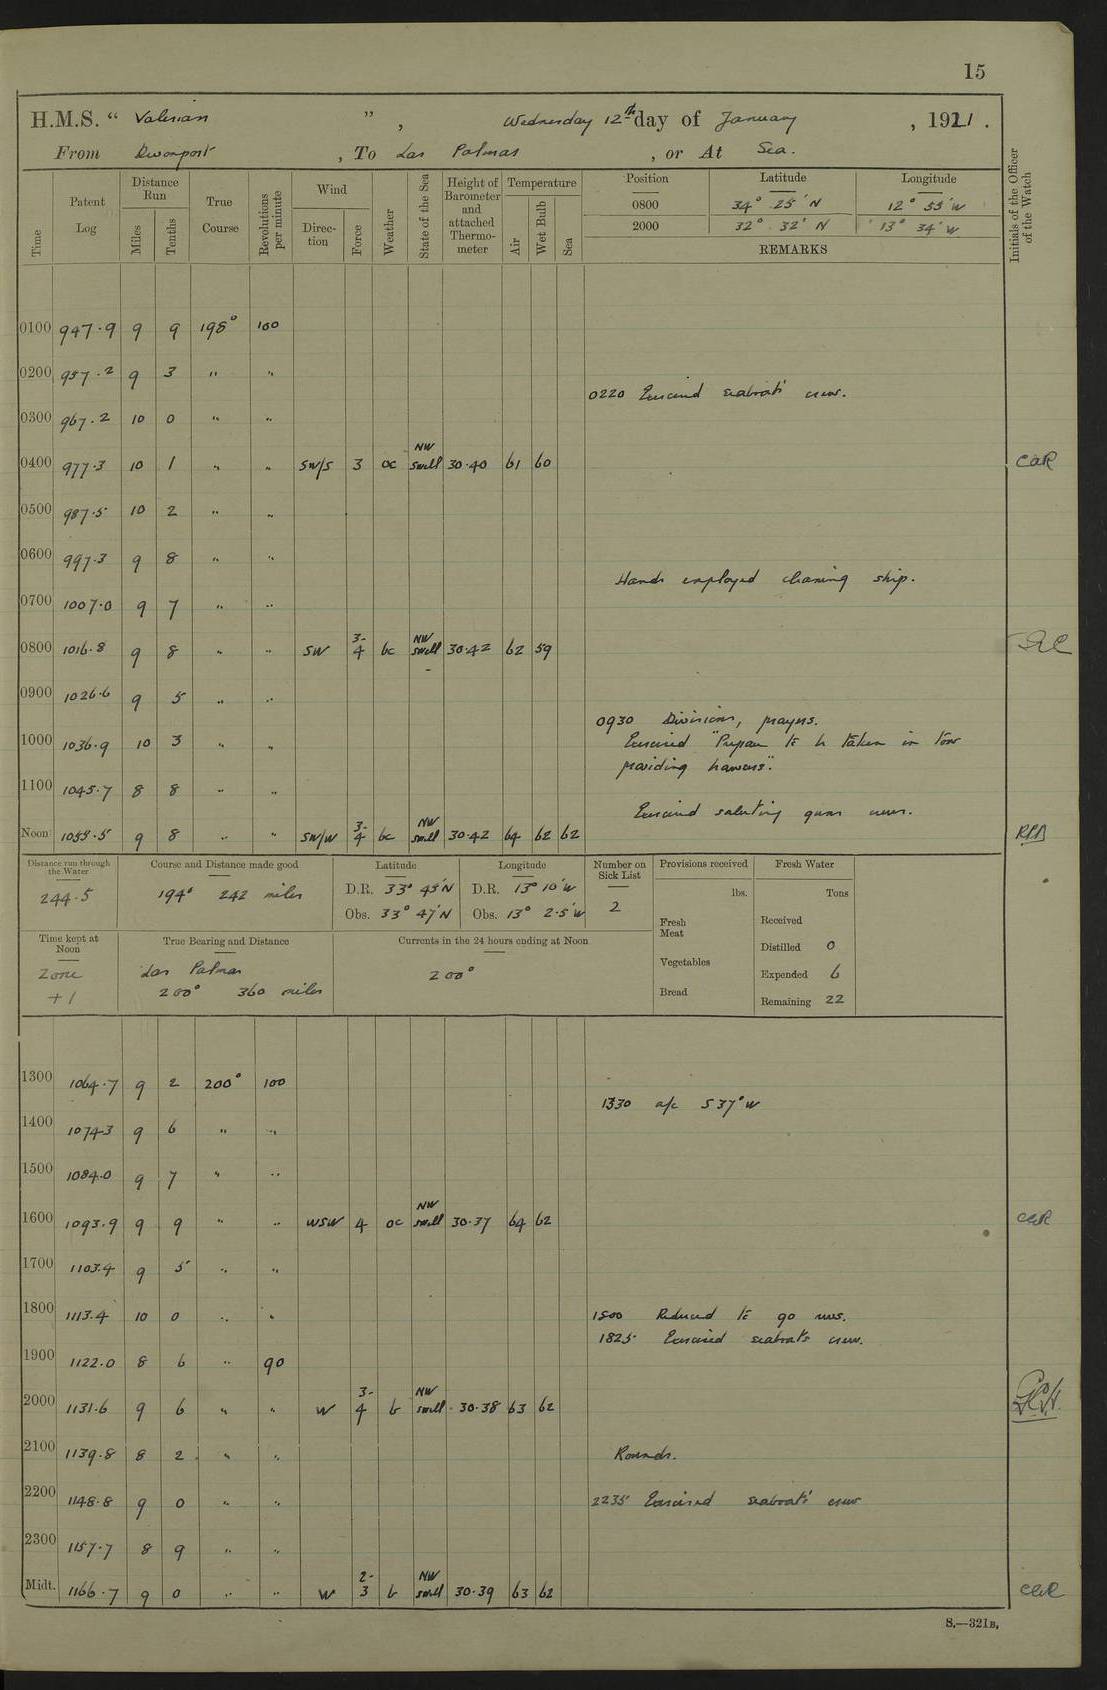 15
H.M.S. “ Valerian ” , Wednesday 12th day of January , 1921 .
From Devonport , To Las Palmas , or At Sea.
Time Patent Log Distance Run Miles Tenths True Course Revolutions per minute Wind Direction Force Weather State of the Sea Height of Barometer and attached Thermometer Temperature Air Wet Bulb Sea Position Latitude Longitude Initials of the Officer of the Watch
0800 34° 25' N 12° 55' W
2000 32° 32' N 13° 34' W
REMARKS
0100 947.9 9 9 198° 100
0200 957.2 9 3 " "
0220 Exercised seaboats' crew.
0300 967.2 10 0 " "
0400 977.3 10 1 " " SW/S 3 oc NW swell 30.40 61 60 CaR
0500 987.5 10 2 " "
0600 997.3 9 8 " "
Hands employed cleaning ship.
0700 1007.0 9 7 " "
0800 1016.8 9 8 " " SW 3-4 bc NW swell 30.42 62 59
0900 1026.6 9 5 " "
0930 Divisions, prayers.
1000 1036.9 10 3 " " Exercised "Prepare to be taken in tow
providing hawsers".
1100 1045.7 8 8 " "
Exercised saluting guns crews.
Noon 1055.5 9 8 " " SW/W 3-4 bc NW swell 30.42 64 62 62 RPB
Distance run through the Water Course and Distance made good Latitude Longitude Number on Sick List Provisions received Fresh Water
244.5 194° 242 miles D.R. 33° 45' N D.R. 13° 10' W 2 lbs. Tons
Obs. 33° 47' N Obs. 13° 2.5' W Fresh Meat Received
Time kept at Noon True Bearing and Distance Currents in the 24 hours ending at Noon Distilled 0
Zone +1 Las Palmas 200° 360 miles 200° Vegetables Expended 6
Bread Remaining 22
1300 1064.7 9 2 200° 100
1330 a/c S 37° W
1400 1074.3 9 6 " "
1500 1084.0 9 7 " "
1600 1093.9 9 9 " " WSW 4 oc NW swell 30.37 64 62 CaR
1700 1103.4 9 5 " "
1800 1113.4 10 0 " " 1800 Reduced to 90 revs.
1825 Exercised seaboats crew.
1900 1122.0 8 6 " 90
2000 1131.6 9 6 " " W 3-4 b NW swell 30.38 63 62
2100 1139.8 8 2 " " Rounds.
2200 1148.8 9 0 " " 2235 Exercised seaboats' crew
2300 1157.7 8 9 " "
Midt. 1166.7 9 0 " " W 2-3 b NW swell 30.39 63 62 CaR
S.—321B.